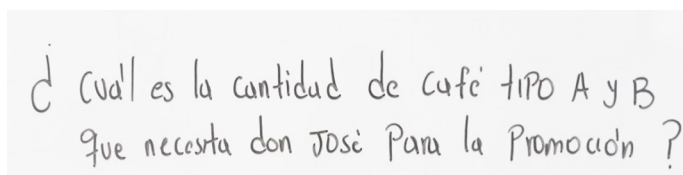 ¿ Cuál es la cantidad de café tipo A y B
que necesita don José Para la Promoción ?